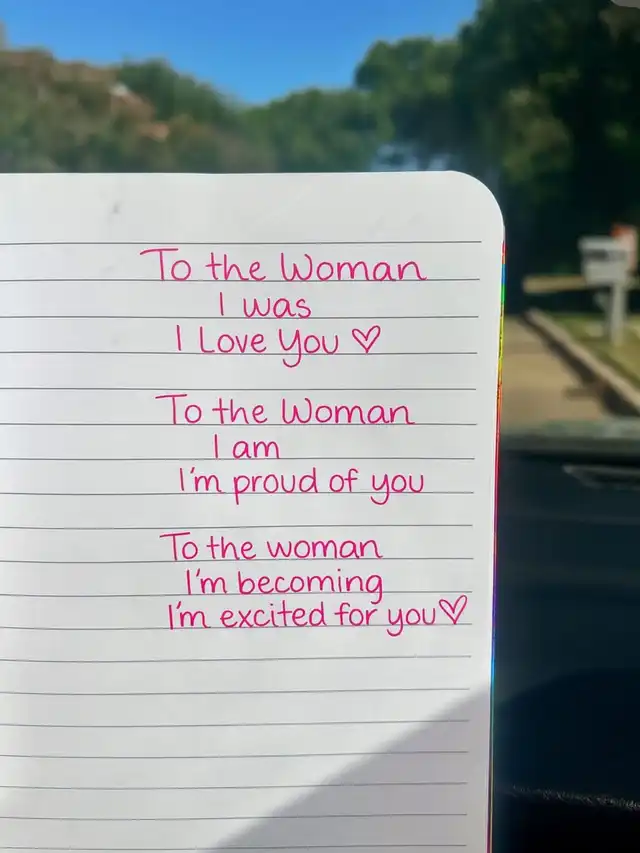 To the Woman
I was
I Love You ♡
To the Woman
I am
I'm proud of you
To the woman
I'm becoming
I'm excited for you♡